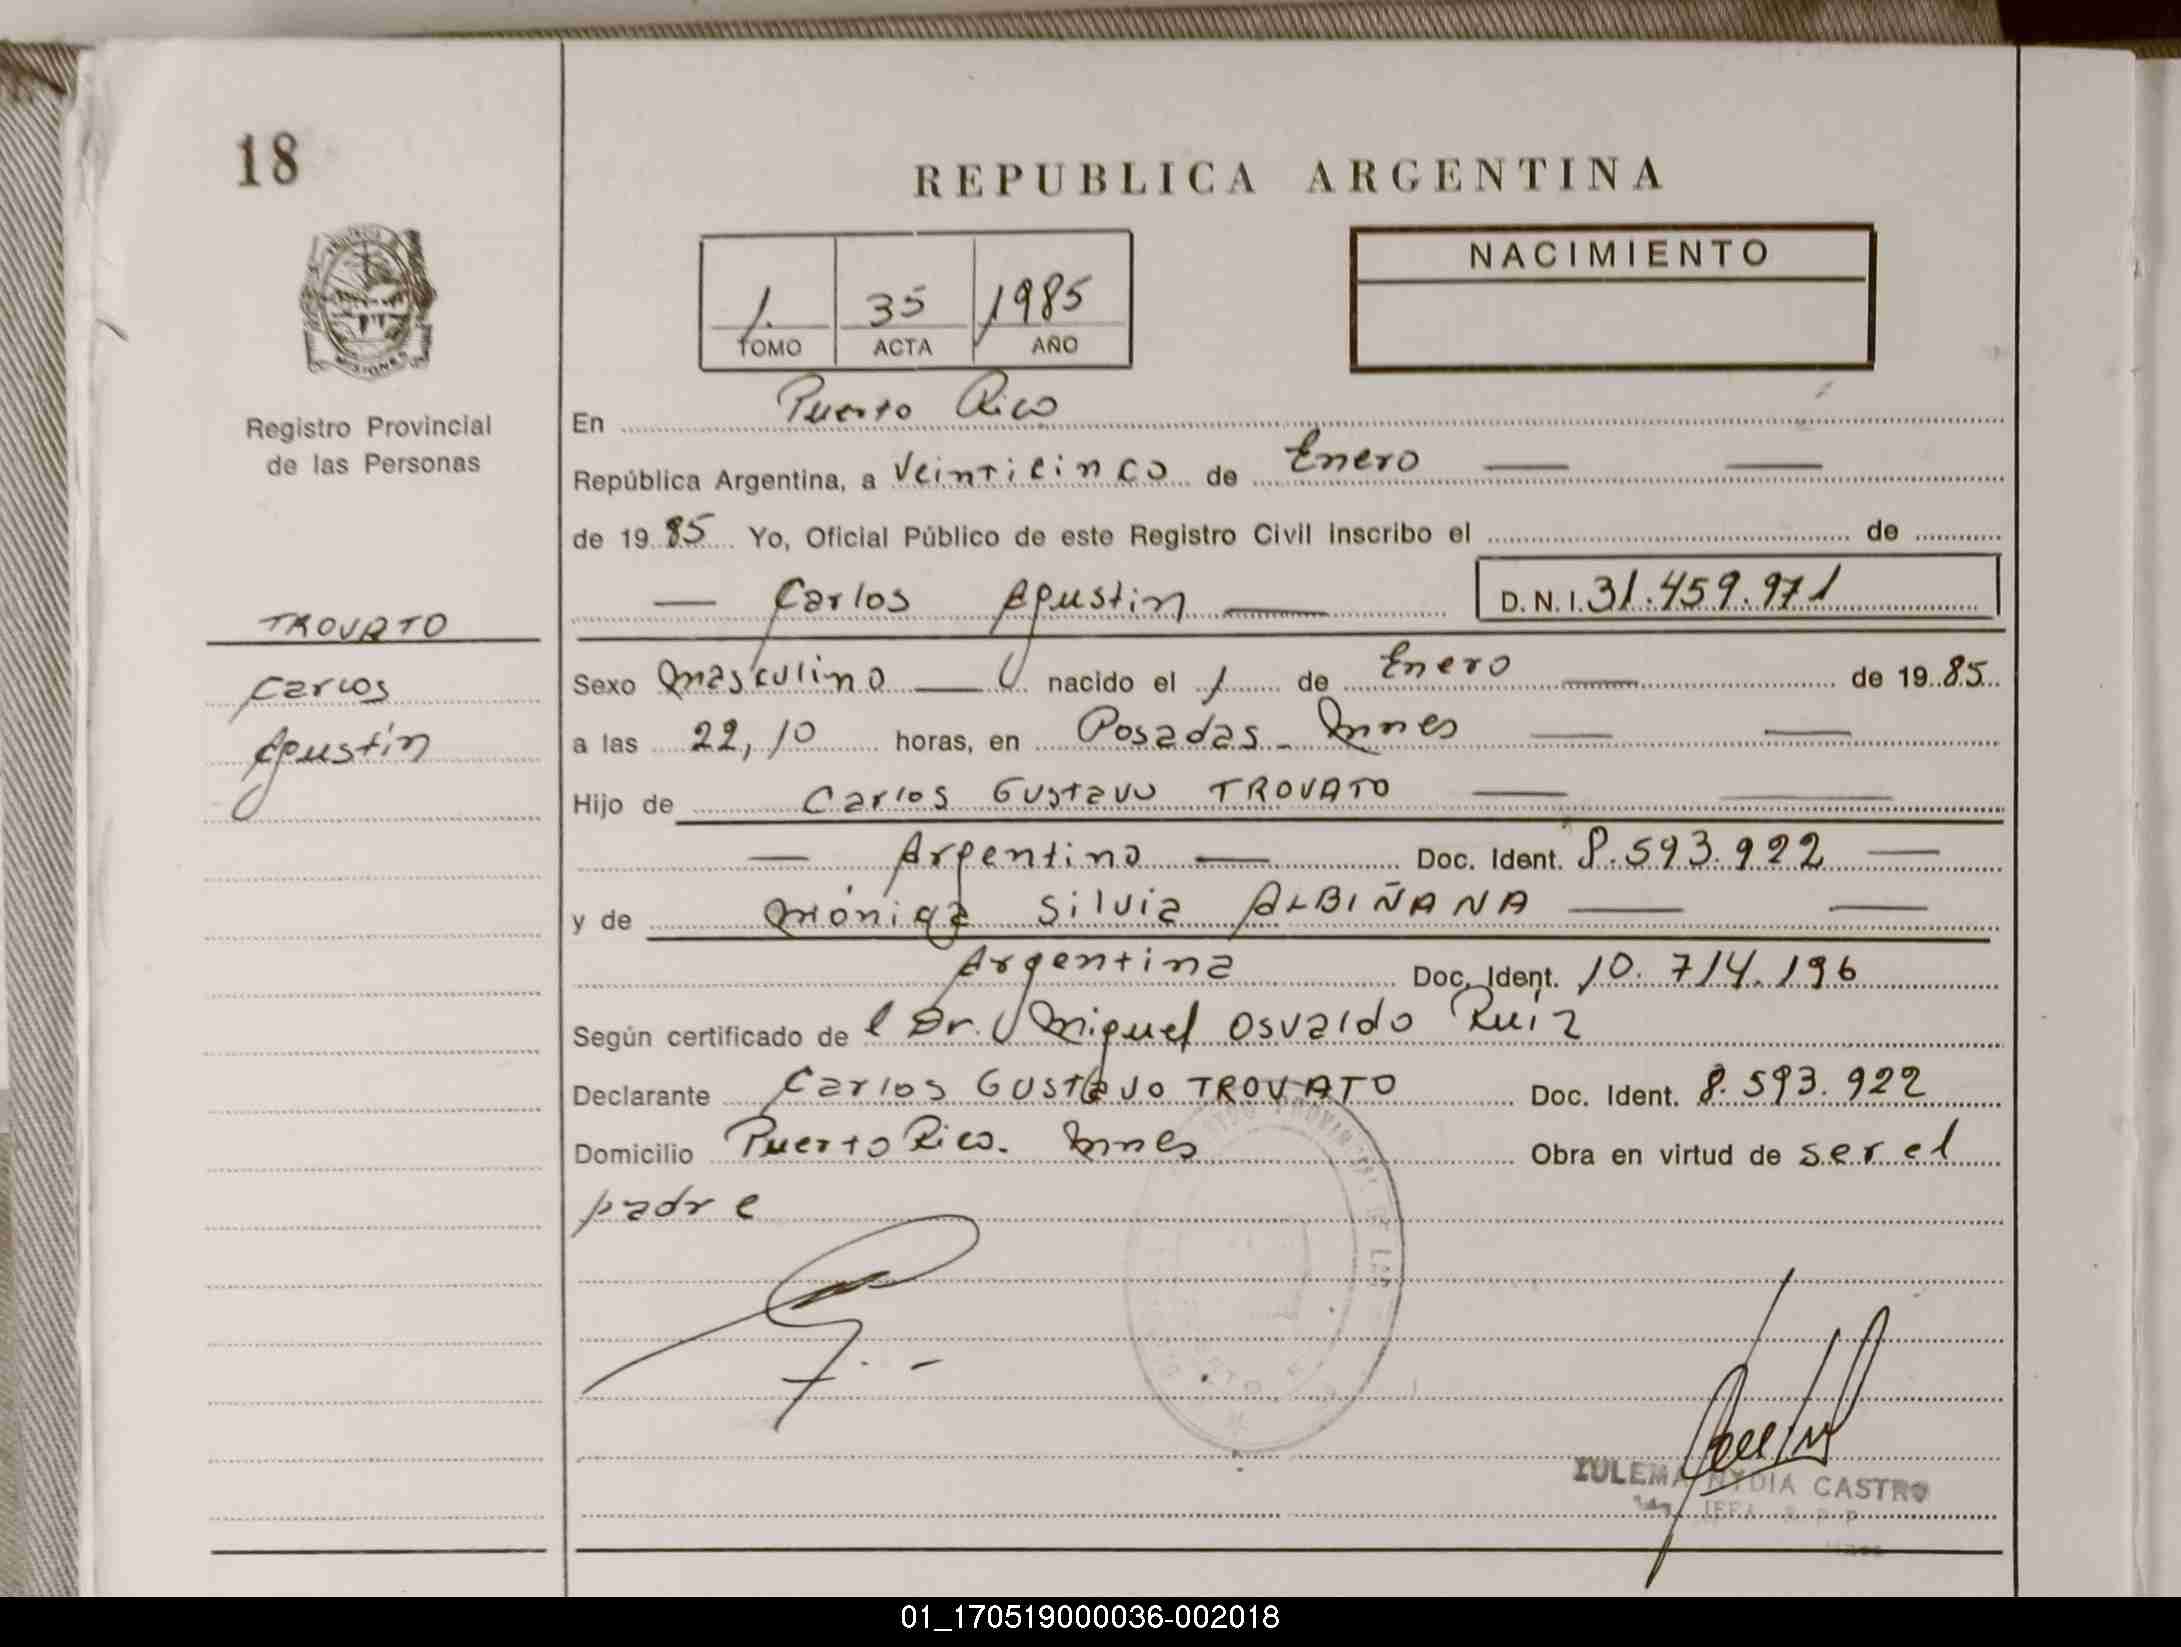 18
REPUBLICA ARGENTINA
1. 35 1985
TOMO ACTA AÑO
NACIMIENTO
Registro Provincial
de las Personas
TROVATO
Carlos
Agustín
En Puerto Rico
República Argentina, a Veinticinco de Enero
de 1985 Yo, Oficial Público de este Registro Civil inscribo el de
— Carlos Agustin — D. N. I. 31.459.971
Sexo masculino — nacido el 1 de Enero — de 1985
a las 22,10 horas, en Posadas - Mnes — —
Hijo de Carlos Gustavo TROVATO — —
— Argentino — Doc. Ident. 8.593.922 —
y de Mónica Silvia ALBIÑANA — —
Argentina Doc. Ident. 10.714.196
Según certificado de l Dr. Miguel Osvaldo Ruíz
Declarante Carlos GUSTAVO TROVATO Doc. Ident. 8.593.922
Domicilio Puerto Rico. Mnes Obra en virtud de ser el
padre
ZULEMA NYDIA CASTRO
JEFA R P P
01_170519000036-002018